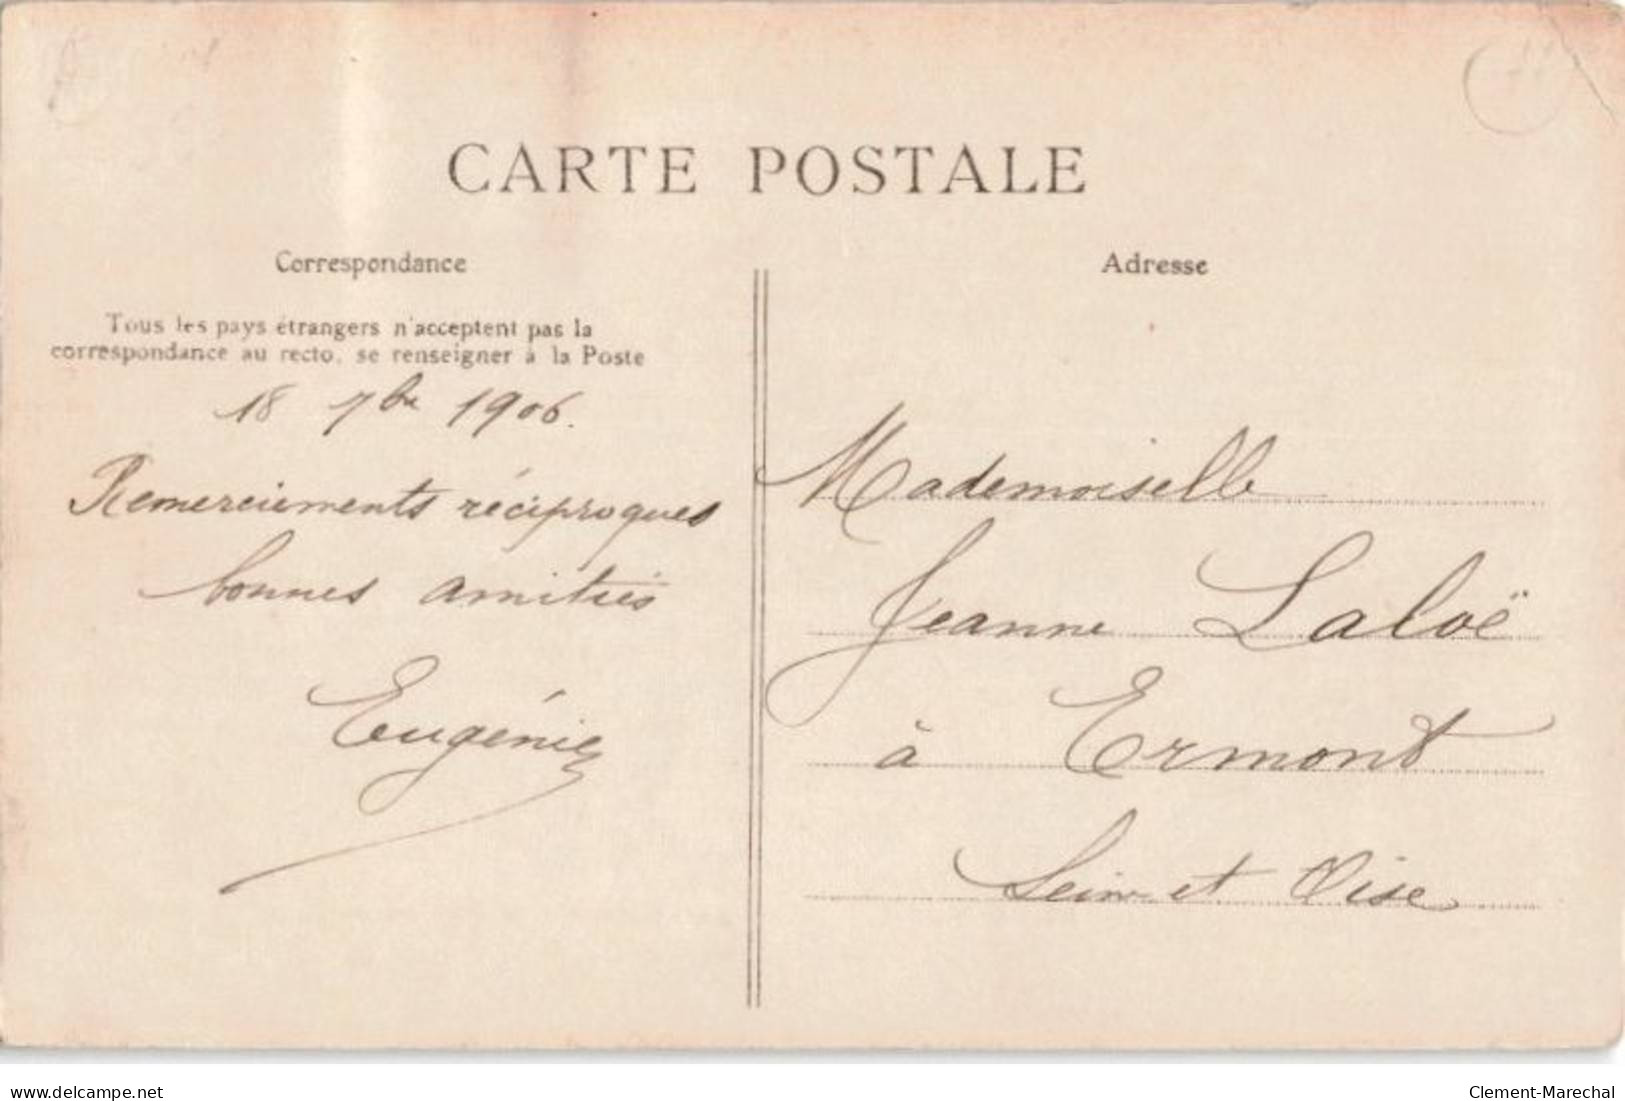 CARTE POSTALE
Correspondance
Tous les pays étrangers n'acceptent pas la
correspondance au recto, se renseigner à la Poste
18 7bre 1906.
Remerciements réciproques
bonnes amitiés
Eugénie
Adresse
Mademoiselle
Jeanne Laloë
à Ermont
Seine et Oise
www.delcampe.net
Clement-Marechal